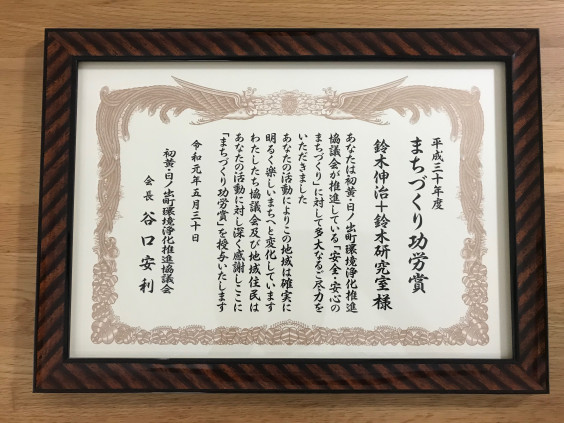 平成三十年度
まちづくり功労賞
鈴木伸治＋鈴木研究室 様
あなたは初黄・日ノ出町環境浄化推進
協議会が推進している「安全・安心の
まちづくり」に対して多大なるご尽力を
いただきました
あなたの活動によりこの地域は確実に
明るく楽しいまちへと変化しています
わたしたち協議会及び地域住民は
あなたの活動に対し深く感謝しここに
「まちづくり功労賞」を授与いたします
令和元年五月三十日
初黄・日ノ出町環境浄化推進協議会
会長 谷口安利